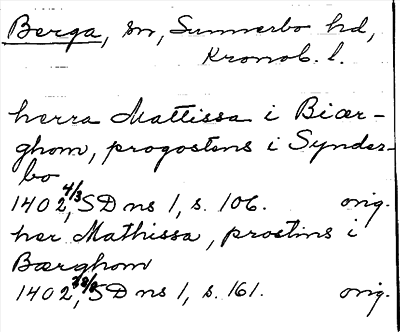 Berga, sn, Sunnerbo hd,
Kronob. l.
herra Mattissa i Biær-
ghom, progostens i Synder-
bo
1402 4/3, SD ns 1, s. 106. orig.
her Mathissa, prostins i
Bærghom
1402, SD ns 1, s. 161. orig.